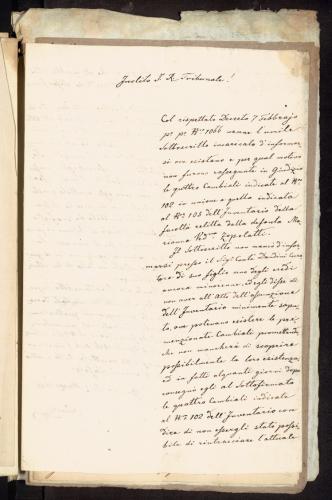 Inclito I. R. Tribunale!
Col rispettato Decreto 7 Febbrajo
p.º p.º Nº 1066 venne l'umile
Sottoscritto incaricato d'informar
si ove esistano e per qual motivo
non furono rassegnate in Giudizio
le quattro Cambiali indicate al Nº
102 in unione a quella indicata
al Nº 103 dell'Inventario della
facoltà relitta dalla defunta Ma
rianna Ved.ª
Il Sottoscritto non mancò d'infor
marsi presso il Sig. Conte Dandini Cura
tore di suo figlio uno degli eredi
ancora minorenne, ed egli disse di
non aver all'Atto dell'assunzione
dell'Inventario minimamente sapu
to, ove potevano esistere le pre
menzionate Cambiali promettendo,
che non mancherà di scoprire
possibilmente la loro esistenza,
ed in fatti alquanti giorni dopo
consegnò egli al Sottofirmato
le quattro Cambiali indicate
al Nº 102 dell'Inventario con
dire di non essergli stato possi
bile di rintracciare l'attuale